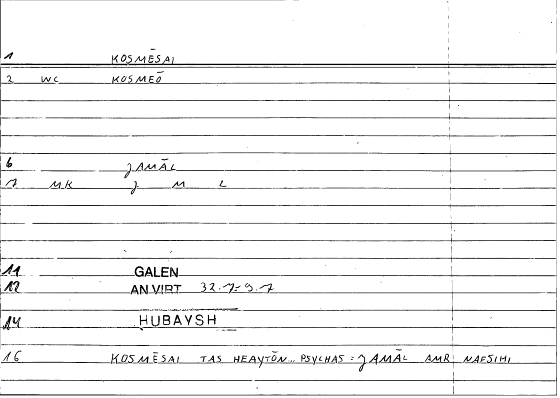 1 KOSMĒSAI
2 WC KOSMEŌ
6 JAMĀL
7 MK J M L
11 GALEN
12 AN VIRT 32.7-9.7
14 HUBAYSH
16 KOSMĒSAI TAS HEAYTŌN.. PSYCHAS = JAMĀL AMR NAFSIHI